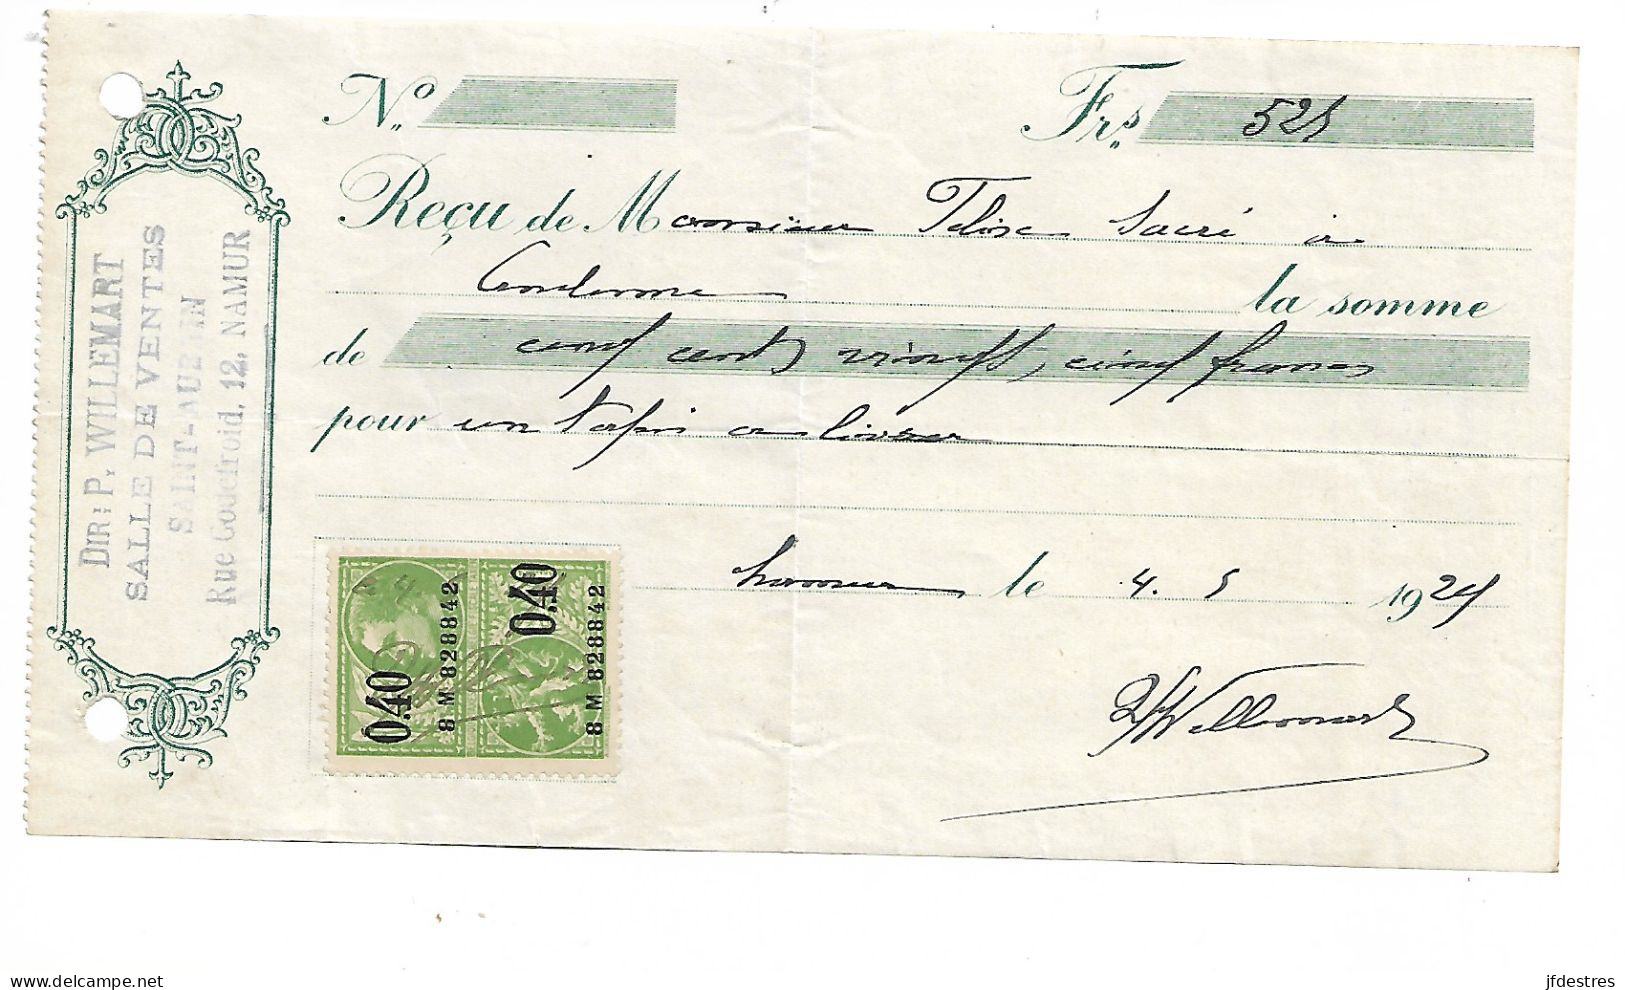 DIR: P. WILLEMART
SALLE DE VENTES
SAINT-AUBAIN
Rue Godefroid, 12, NAMUR
No
Frs 525
Reçu de Monsieur Sacré à
la somme
de cinq cents vingt, cinq francs
pour un tapis a livrer
Namur le 4. 5 1925
PWillemart
0.40
8 M 828842
0.40
8 M 828842
delcampe.net
jfdestres